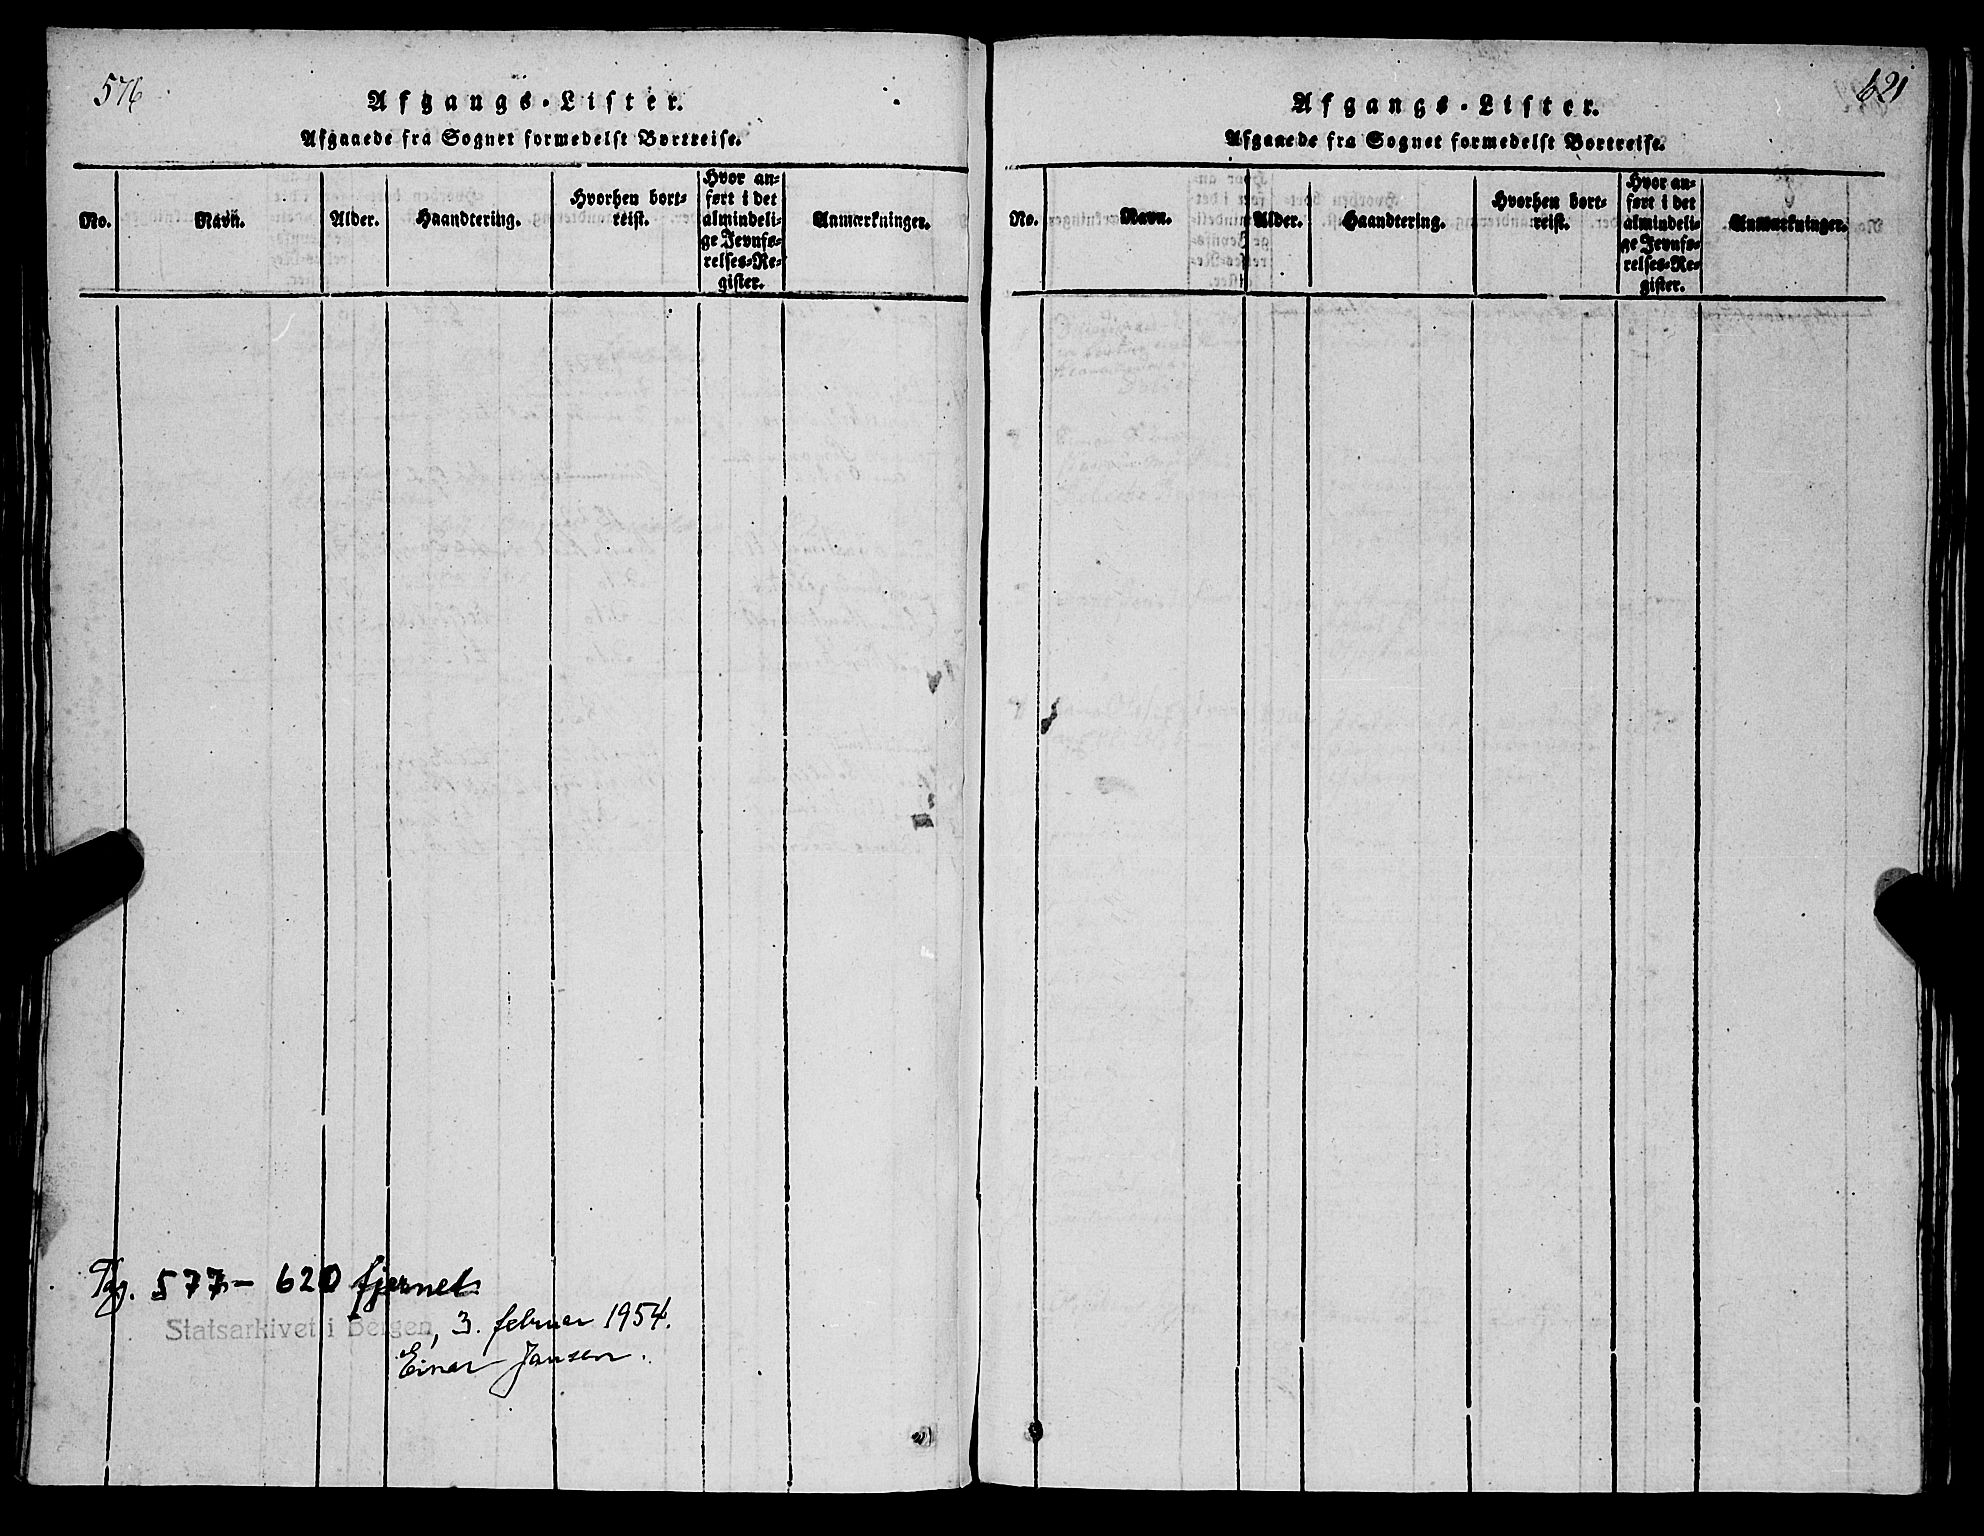 576
Afgangs-Lister.
Afgaaede fra Sognet formedelst Bortreise.
No.
Navn.
Alder.
Haandtering.
Hvorhen bort-
reist.
Hvor an-
ført i det
almindeli-
ge Jevnfø-
relses-Re-
gister.
Anmærkninger.
Pag. 577 - 620 fjernet
Statsarkivet i Bergen, 3. februar 1954.
Einar Jansen.
621
Afgangs-Lister.
Afgaaede fra Sognet formedelst Bortreise.
No.
Navn.
Alder.
Haandtering.
Hvorhen bort-
reist.
Hvor an-
ført i det
almindeli-
ge Jevnfø-
relses-Re-
gister.
Anmærkninger.